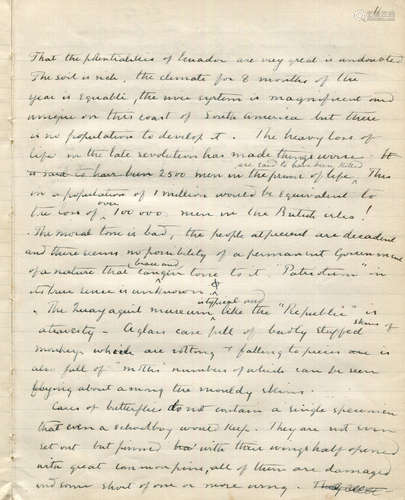 That the potentialities of Ecuador are very great is undoubted
The soil is rich, the climate for 8 months of the
year is equable, the river system is magnificent and
unique on this coast of South America but there
is no population to develop it. The heavy loss of
life in the late revolution has made things worse. It
are said to have been killed
is said to have been 2500 men in the prime of life. This
on a population of 1 million would be equivalent to
over
the loss of 100 000 men in the British isles!
The moral tone is bad, the people at present are decadent
and there seems no possibility of a permanent Government
of a nature that can give tone to it. Patriotism in
its true sense is unknown.
is typical and
The Guayaquil museum like the "Republic" is
atrocity - A glass case full of badly stuffed skins of
monkeys which are rotting & falling to pieces one is
also full of "moths" numbers of which can be seen
flying about among the mouldy skins.
Cases of butterflies do not contain a single specimen
that even a schoolboy would keep. They are not even
set out but pinned with their wings half opened
with great common pins, all of them are damaged
and some short of one or more wing.